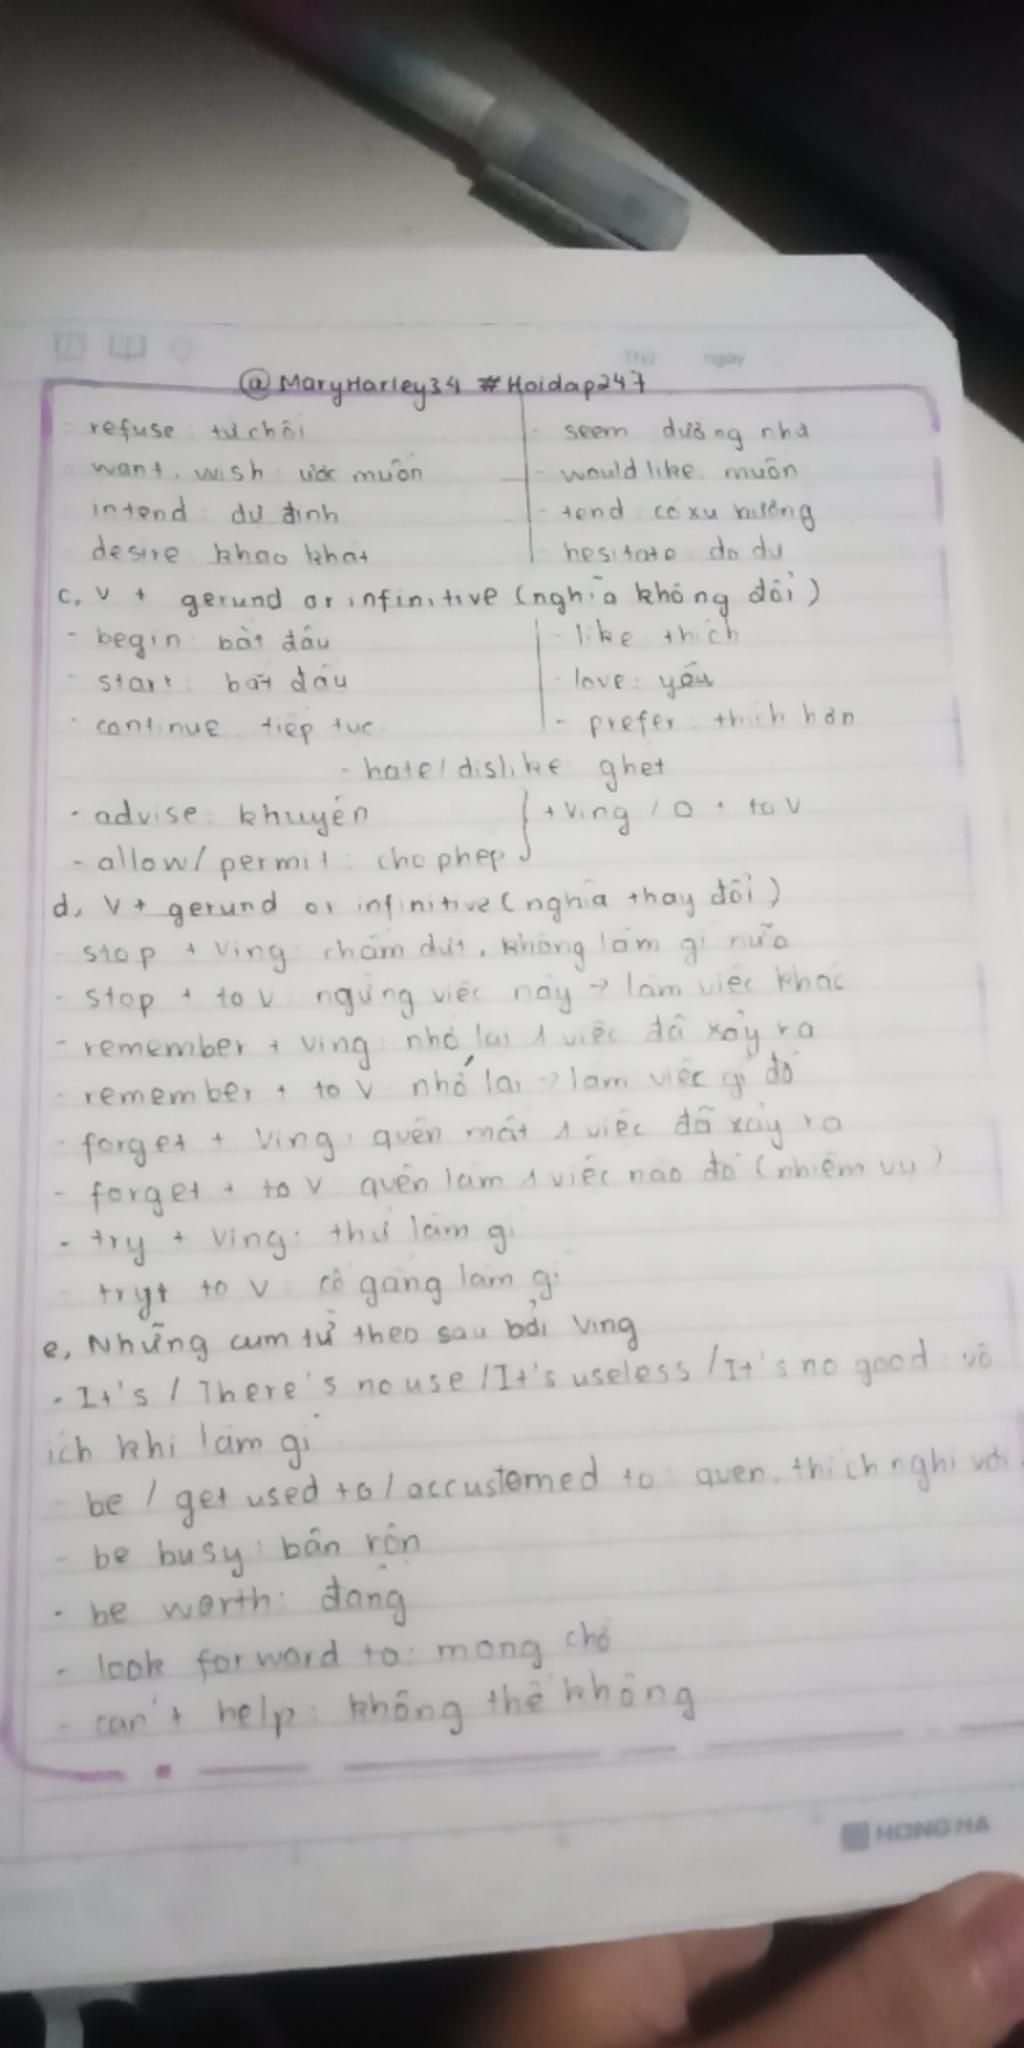 Thứ ngày
@MaryHarley34 #Hoidap247
- refuse : từ chối - seem dường như
want, wish : ước muốn - would like : muốn
intend : dự định - tend : có xu hướng
desire : khao khát - hesitate : do dự
c, V + gerund or infinitive (nghĩa không đổi)
- begin : bắt đầu - like : thích
- start : bắt đầu - love : yêu
- continue : tiếp tục - prefer : thích hơn
- hate / dislike : ghét
- advise : khuyên } + Ving / O + to V
- allow / permit : cho phép
d, V + gerund or infinitive (nghĩa thay đổi)
- stop + Ving : chấm dứt, không làm gì nữa
- stop + to V : ngừng việc này → làm việc khác
- remember + Ving : nhớ lại 1 việc đã xảy ra
- remember + to V nhớ lại → làm việc gì đó
- forget + Ving : quên mất 1 việc đã xảy ra
- forget + to V quên làm 1 việc nào đó (nhiệm vụ)
- try + Ving : thử làm gì
- try + to V : cố gắng làm gì
e, Những cụm từ theo sau bởi Ving
- It's / There's no use / It's useless / It's no good : vô
ích khi làm gì
- be / get used to / accustomed to : quen, thích nghi với
- be busy : bận rộn
- be worth : đáng
- look forward to : mong chờ
- can't help : không thể không
HONG HA